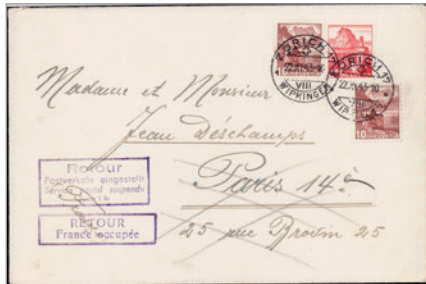 ZÜRICH 17
22.XI.43-16
VIII
WIPKINGEN
ZÜRICH 17
22.XI.43-16
WIPKINGEN
10
Madame et Monsieur
Jean Déschamps
Paris 14e
25 rue 25
Retour
Postverkehr eingestellt
Service postal suspendu
RETOUR
France occupée